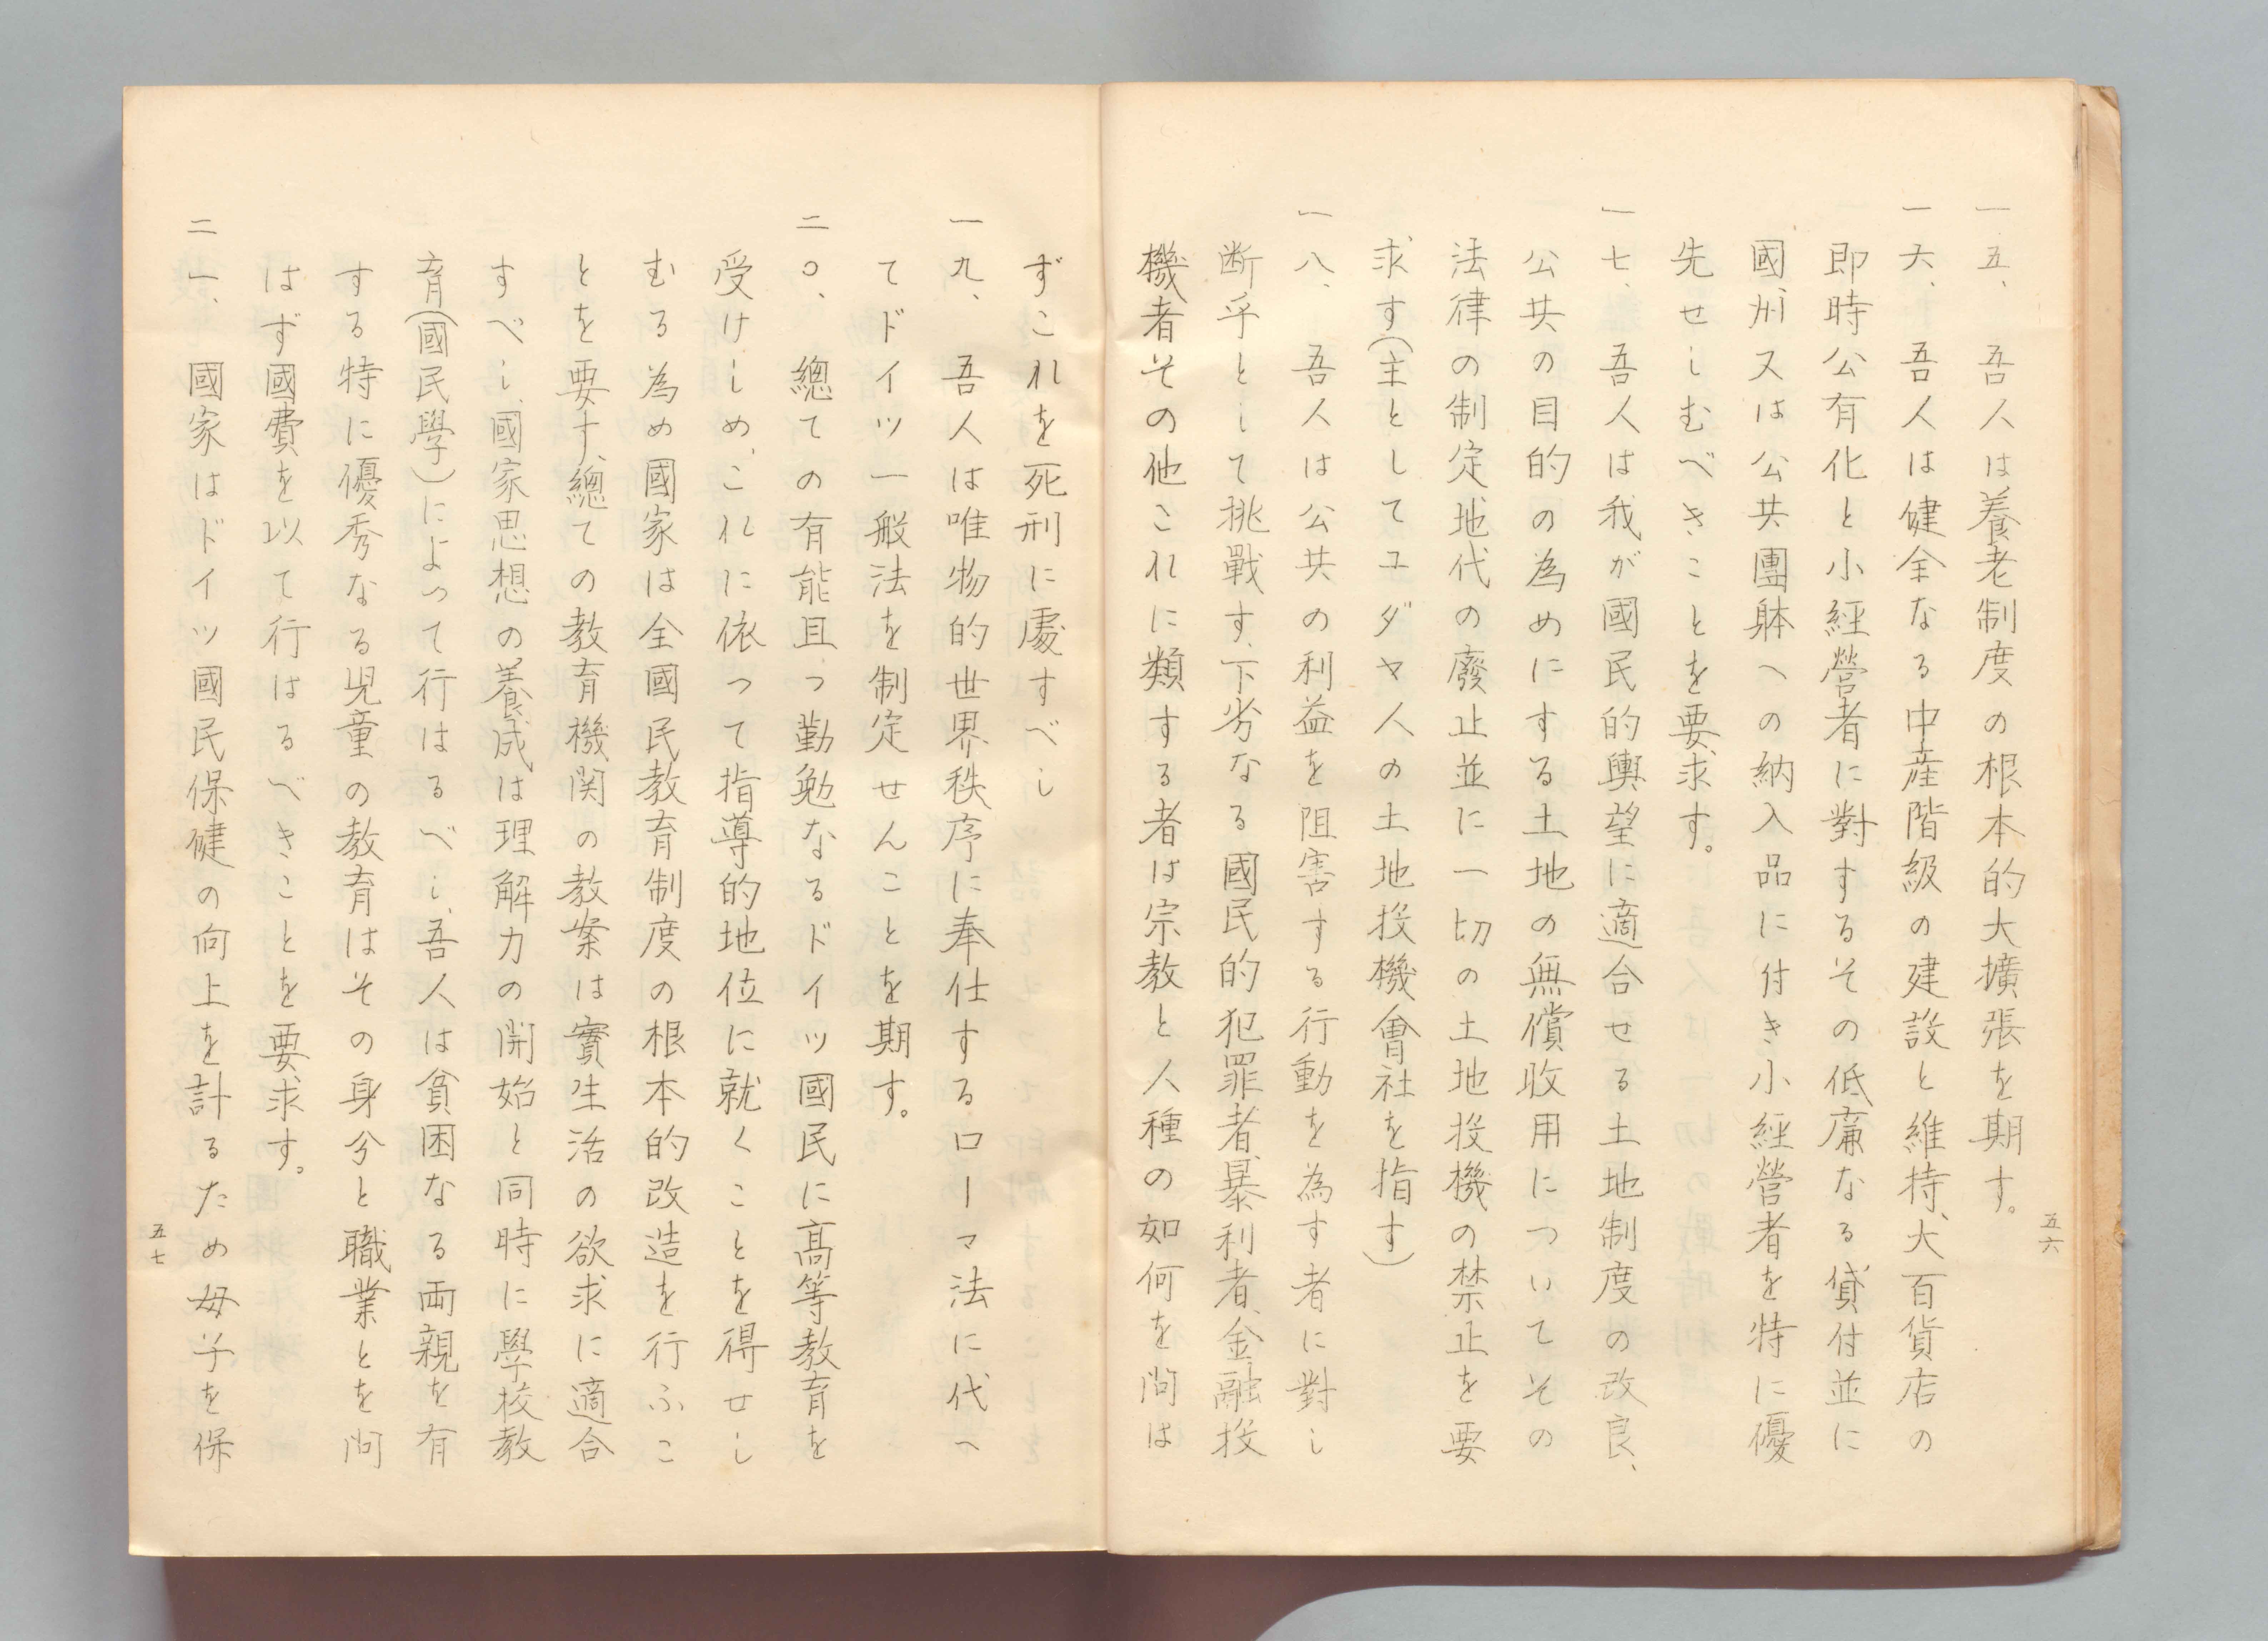 一五、吾人は養老制度の根本的大擴張を期す。
一六、吾人は健全なる中産階級の建設と維持、大百貨店の
即時公有化と小經營者に對するその低廉なる貸付並に
國、州又は公共團躰への納入品に付き小經營者を特に優
先せしむべきことを要求す。
一七、吾人は我が國民的輿望に適合せる土地制度の改良、
公共の目的の為めにする土地の無償收用についてその
法律の制定地代の廢止並に一切の土地投機の禁止を要
求す(主としてユダヤ人の土地投機會社を指す)
一八、吾人は公共の利益を阻害する行動を為す者に對し
断乎として挑戰す、下劣なる國民的犯罪者、暴利者、金融投
機者その他これに類する者は宗教と人種の如何を問は
五六
ずこれを死刑に處すべし
一九、吾人は唯物的世界秩序に奉仕するローマ法に代へ
てドイツ一般法を制定せんことを期す。
二〇、總ての有能且つ勤勉なるドイツ國民に高等教育を
受けしめ、これに依つて指導的地位に就くことを得せし
むる為め國家は全國民教育制度の根本的改造を行ふこ
とを要す、總ての教育機関の教案は實生活の欲求に適合
すべし、國家思想の養成は理解力の開始と同時に學校教
育(國民學)によつて行はるべし、吾人は貧困なる両親を有
する特に優秀なる児童の教育はその身分と職業とを問
はず國費を以て行はるべきことを要求す。
二一、國家はドイツ國民保健の向上を計るため母子を保
五七